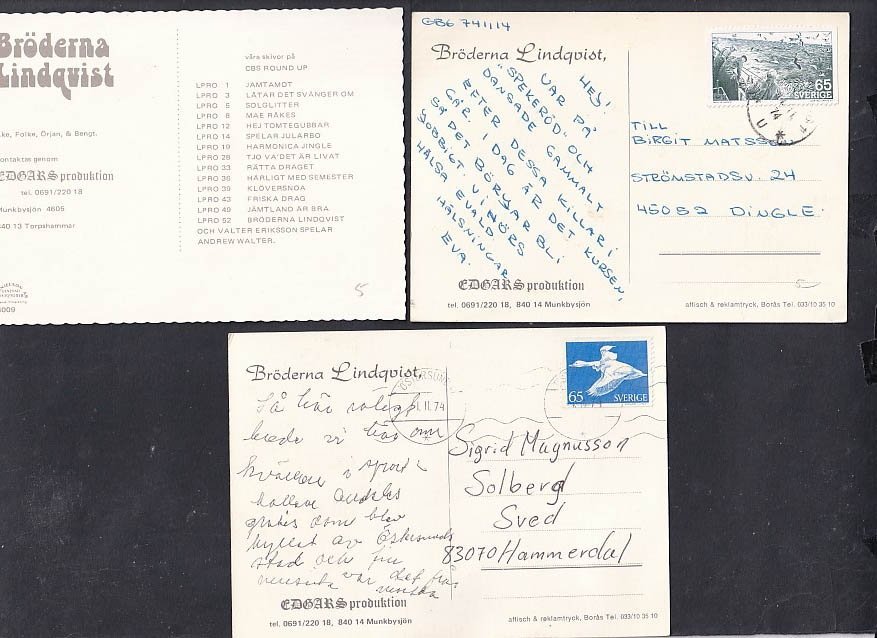 Bröderna
Lindqvist
ke, Folke, Örjan, & Bengt.
ontaktas genom
EDGARS produktion
tel. 0691/220 18
Munkbysjön 4605
840 13 Torpshammar
våra skivor på
CBS ROUND UP
LPRO 1 JÄMTAMOT
LPRO 3 LÅTAR DET SVÄNGER OM
LPRO 5 SOLGLITTER
LPRO 8 MAE RÅKES
LPRO 12 HEJ TOMTEGUBBAR
LPRO 14 SPELAR JULARBO
LPRO 19 HARMONICA JINGLE
LPRO 28 TJO VA'DET ÄR LIVAT
LPRO 33 RÄTTA DRAGET
LPRO 36 HÄRLIGT MED SEMESTER
LPRO 39 KLÖVERSNOA
LPRO 43 FRISKA DRAG
LPRO 49 JÄMTLAND ÄR BRA
LPRO 52 BRÖDERNA LINDQVIST
OCH WALTER ERIKSSON SPELAR
ANDREW WALTER.
5
GBG 741114
Bröderna Lindqvist,
HEJ!
VAR PÅ
"SPEKERÖD" OCH
DANSADE GAMMALT
EFTER DESSA KILLAR I
GÅR. I DAG ÄR DET KURSEN,
SÅ DET BÖRJAR BLI
JOBBIGT. VI HÖRS
HÄLSA EVALD
HÄLSNINGAR
EVA.
EDGARS produktion
tel. 0691/220 18, 840 14 Munkbysjön
65
SVERIGE
TILL
BIRGIT MATSSON
STRÖMSTADSV. 24
450 52 DINGLE.
5
affisch & reklamtryck, Borås Tel. 033/10 35 10
Bröderna Lindqvist,
Så här roligt
hade vi här om
kvällen i sport
hallen
gratis som blev
hyllat av Östersunds
stad och
var det
EDGARS produktion
tel. 0691/220 18, 840 14 Munkbysjön
ÖSTERSUND
11.74
65
SVERIGE
Sigrid Magnusson
Solberg
Sved
83070 Hammerdal
affisch & reklamtryck, Borås Tel. 033/10 35 10